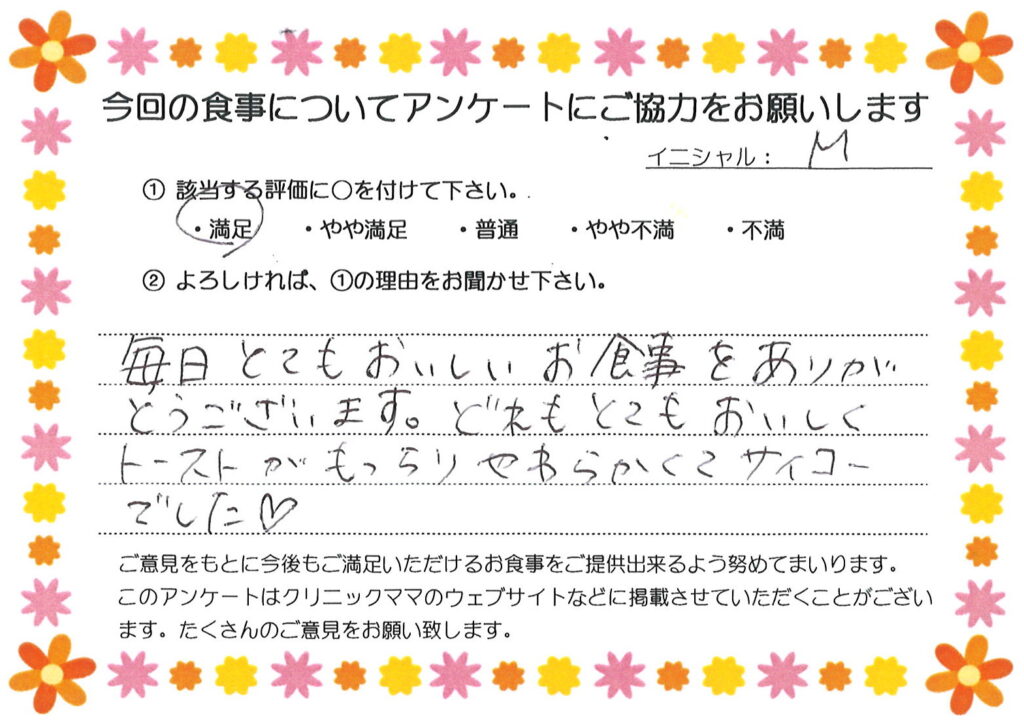 今回の食事についてアンケートにご協力をお願いします
イニシャル： M
① 該当する評価に○を付けて下さい。
・満足 ・やや満足 ・普通 ・やや不満 ・不満
② よろしければ、①の理由をお聞かせ下さい。
毎日とてもおいしいお食事をありが
とうございます。どれもとてもおいしく
トーストがもっちりやわらかくてサイコー
でした♡
ご意見をもとに今後もご満足いただけるお食事をご提供出来るよう努めてまいります。
このアンケートはクリニックママのウェブサイトなどに掲載させていただくことがござい
ます。たくさんのご意見をお願い致します。